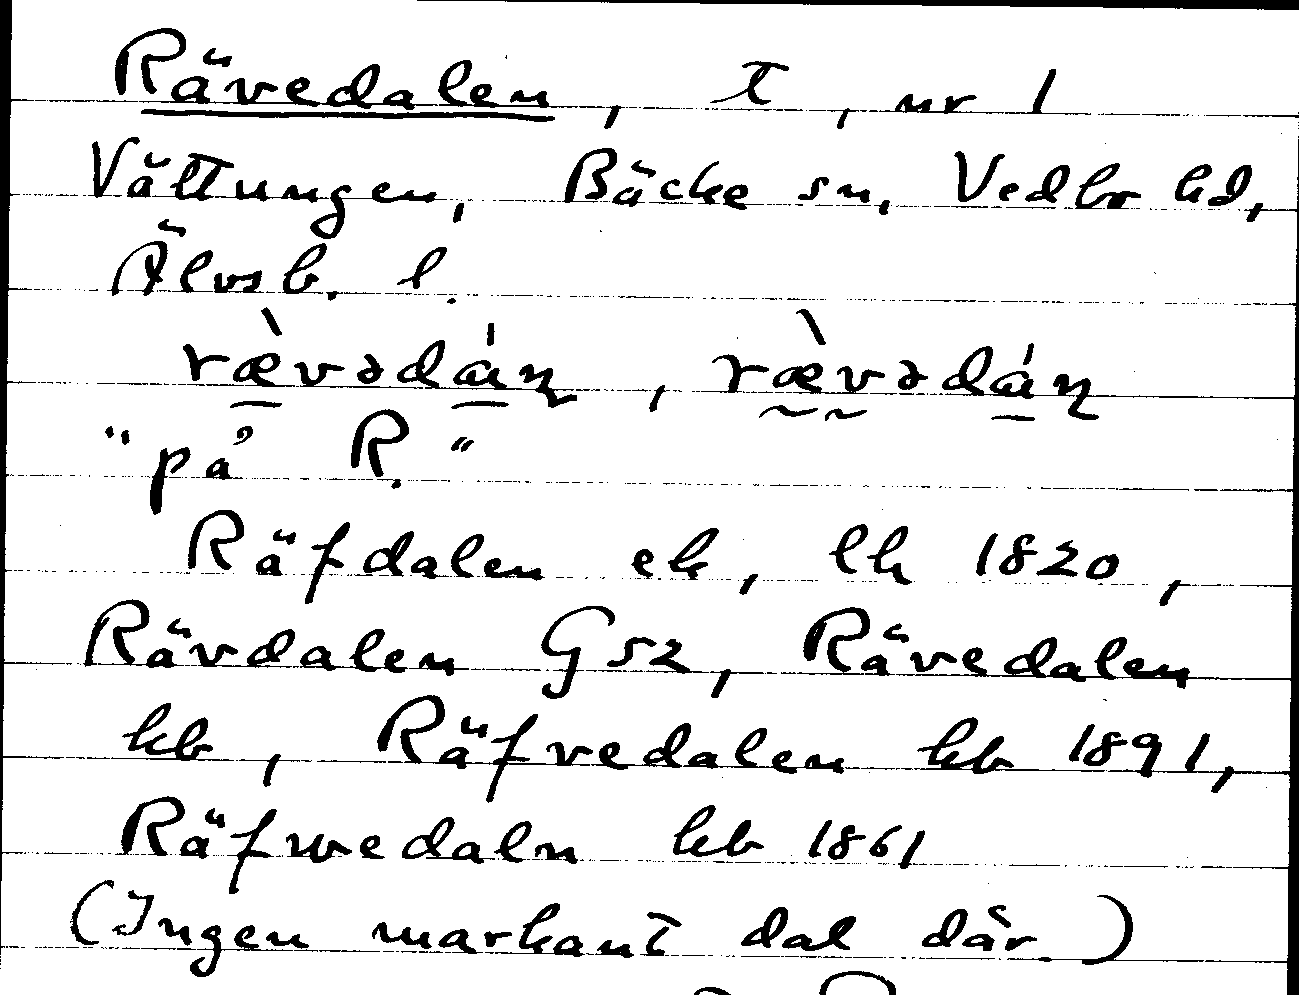 Rävedalen, T, nr 1
Vättungen, Bäcke sn, Vedbo hd,
Älvsb. l.
ræ̀vədáɳ, ræ̀vədáɳ
"på R."
Räfdalen ek, lk 1820,
Rävdalen G52, Rävedalen
kb, Räfvedalen kb 1891,
Räfwedaln kb 1861
(Ingen markant dal där.)